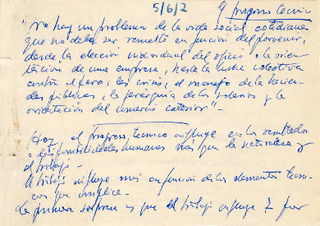 5/6/2 El progreso tecnico
"No hay un problema de la vida social cotidiana
que no deba ser resuelto en funcion del porvenir,
desde la elección individual del oficio o la orien-
tación de una empresa, hasta la lucha colectiva
contra el paro, las crisis, el manejo de la Hacien-
da publica, la jerarquía de los salarios y la
orientación del comercio exterior"
Hoy el progreso tecnico influye en los resultados
y posibilidades humanas más que la naturaleza y
el trabajo.
El trabajo influye más en funcion de los elementos tecni-
cos que implica.
La primera sorpresa es que el trabajo influye